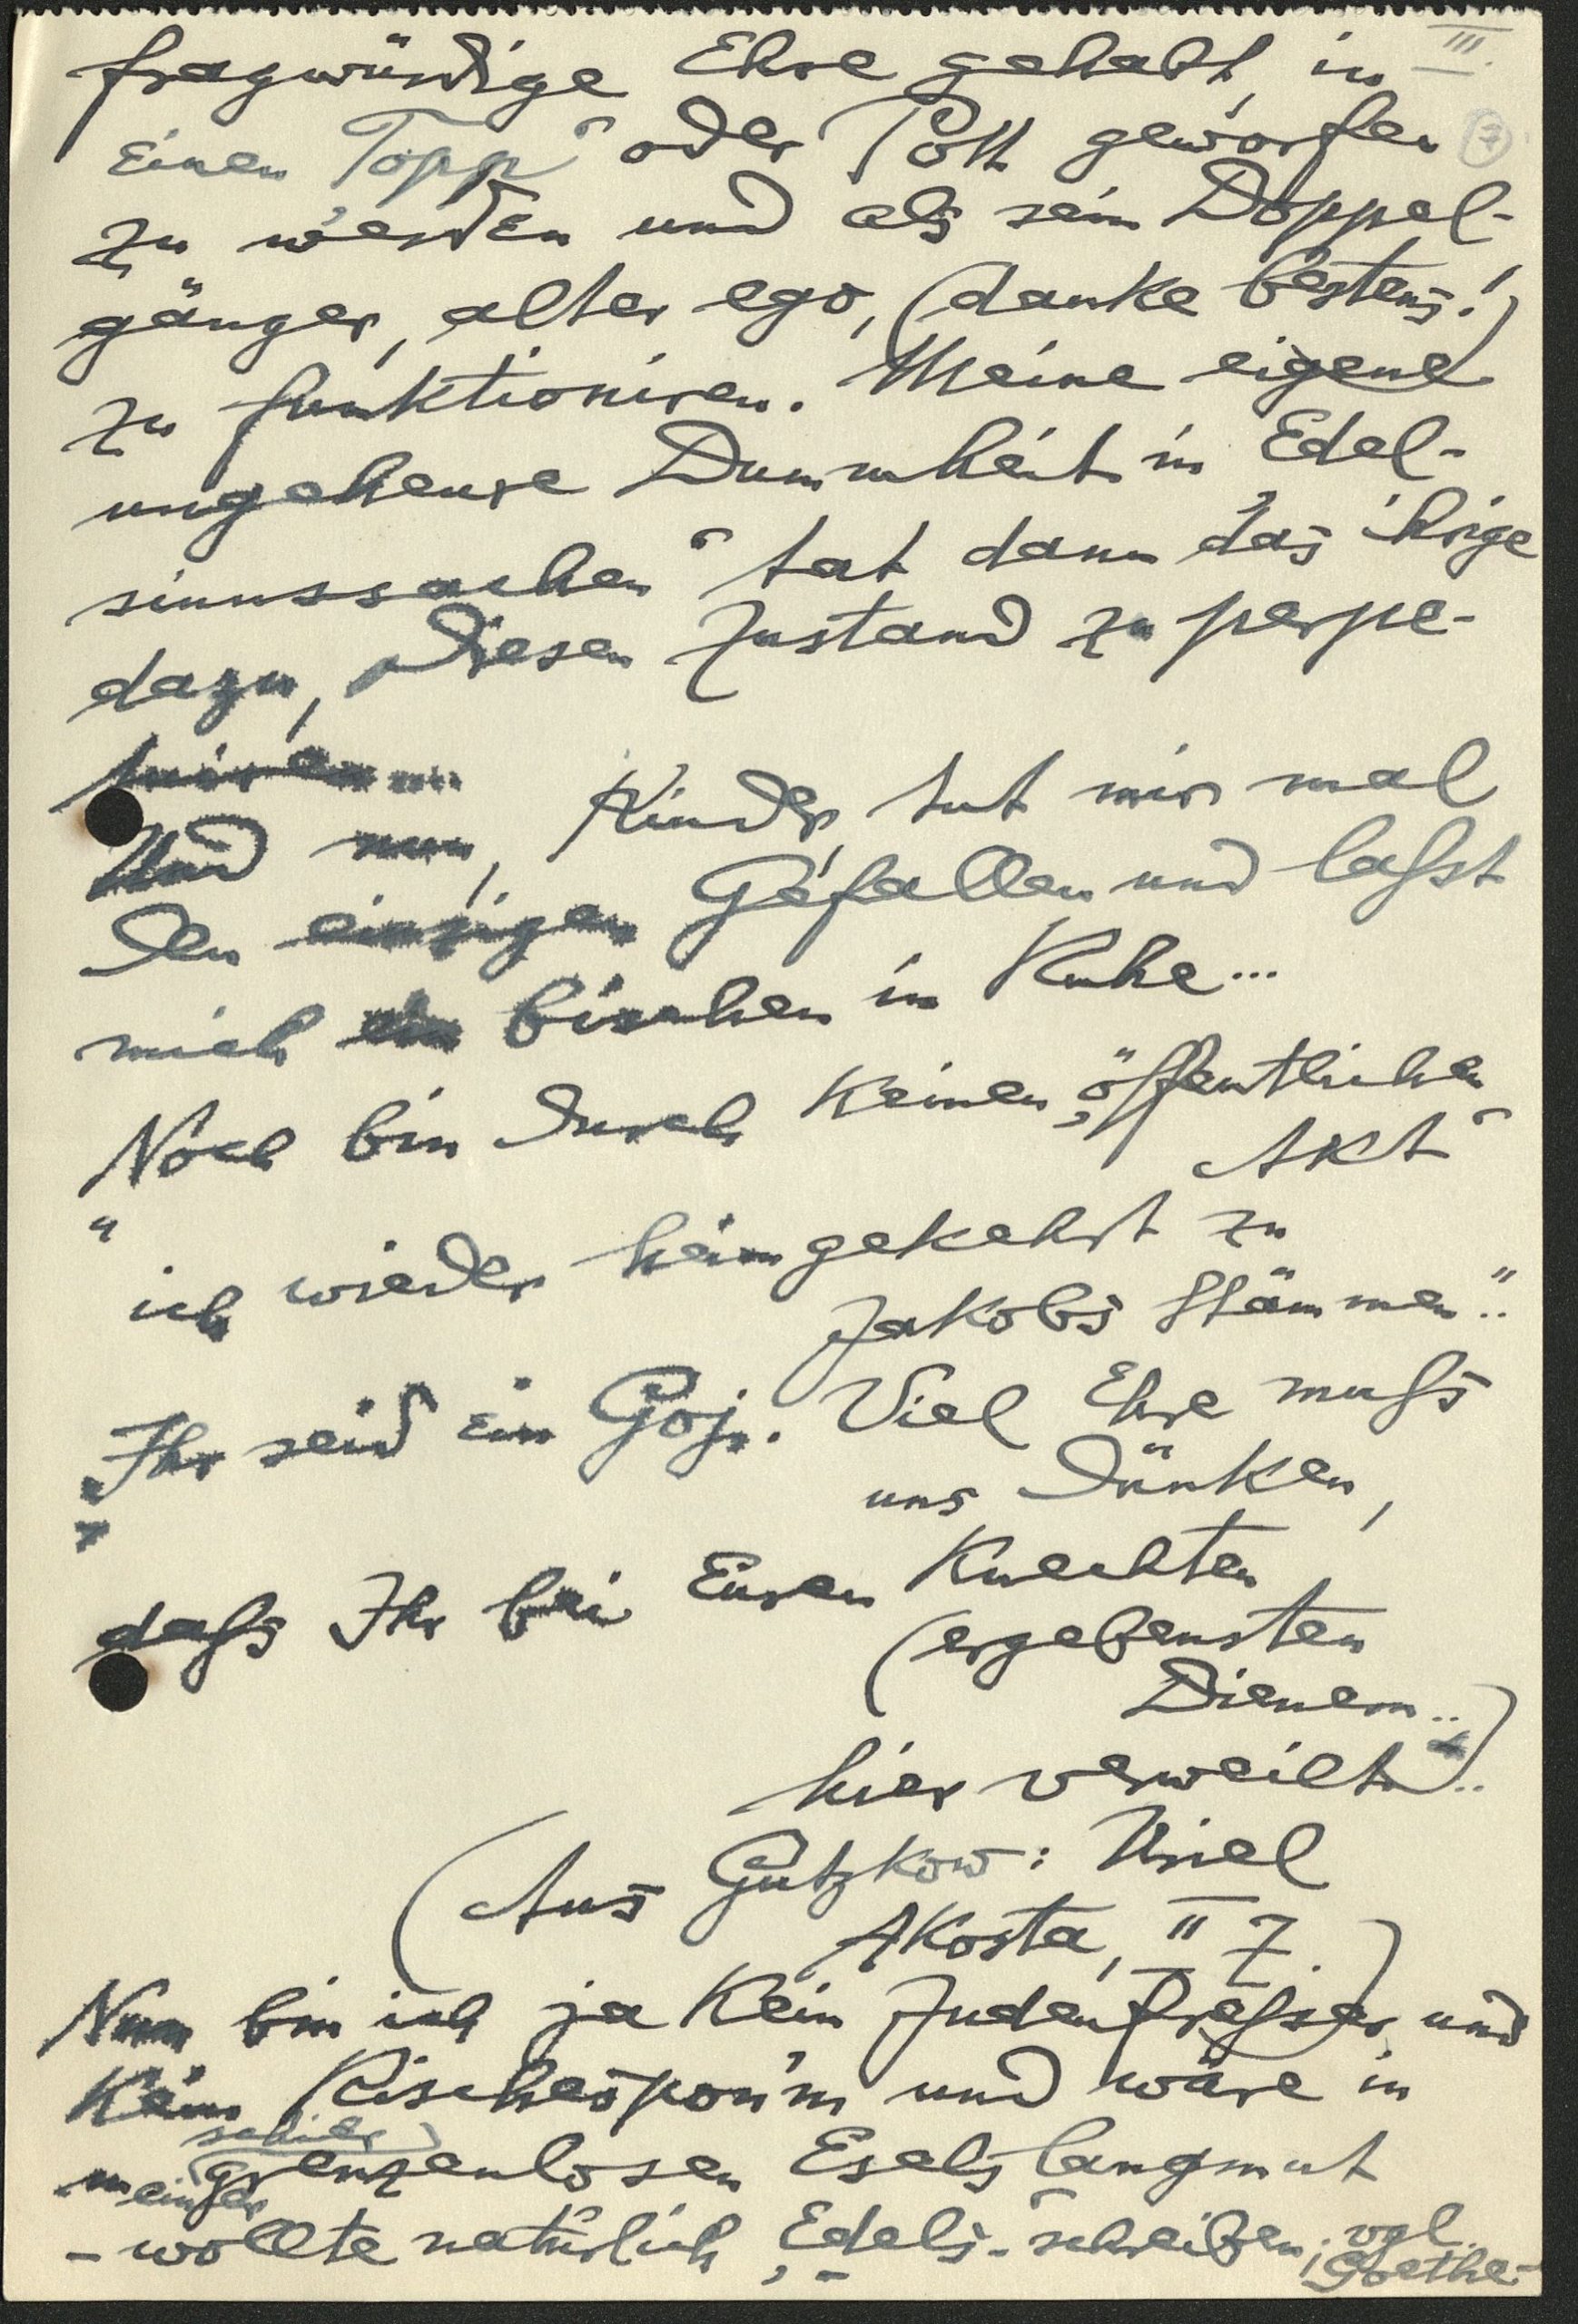 III.
fragwürdige Ehre gehabt, in
einen Topp" oder Pott geworfen
7
zu werden und als sein Doppel-
gänger, alter ego, (danke bestens!)
zu funktioniren. Meine eigene
ungeheure Dummheit in Edel-
sinnssachen" tat dann das ihrige
dazu, diesen Zustand zu perpe-
tuiren...
Und nun, Kinder, tut mir mal
den einzigen Gefallen und lasst
mich ein bischen in Ruhe...
Noch bin durch keinen „öffentlichen
Akt"
"ich wieder heimgekehrt zu
Jakobs Stämmen"..
Ihr seid ein Goj. Viel Ehre muss
uns dünken,
dass Ihr bei Euren Knechten
(ergebensten
Dienern..)
hier verweilt"..
(Aus Gutzkow: Uriel
Akosta, II 7.)
Nun bin ich ja kein Judenfresser und
kein Rischesponim und wäre in
schier
meiner grenzenlosen Esels langmut
- wollte natürlich „Edels-" schreiben, vgl.
Goethe-